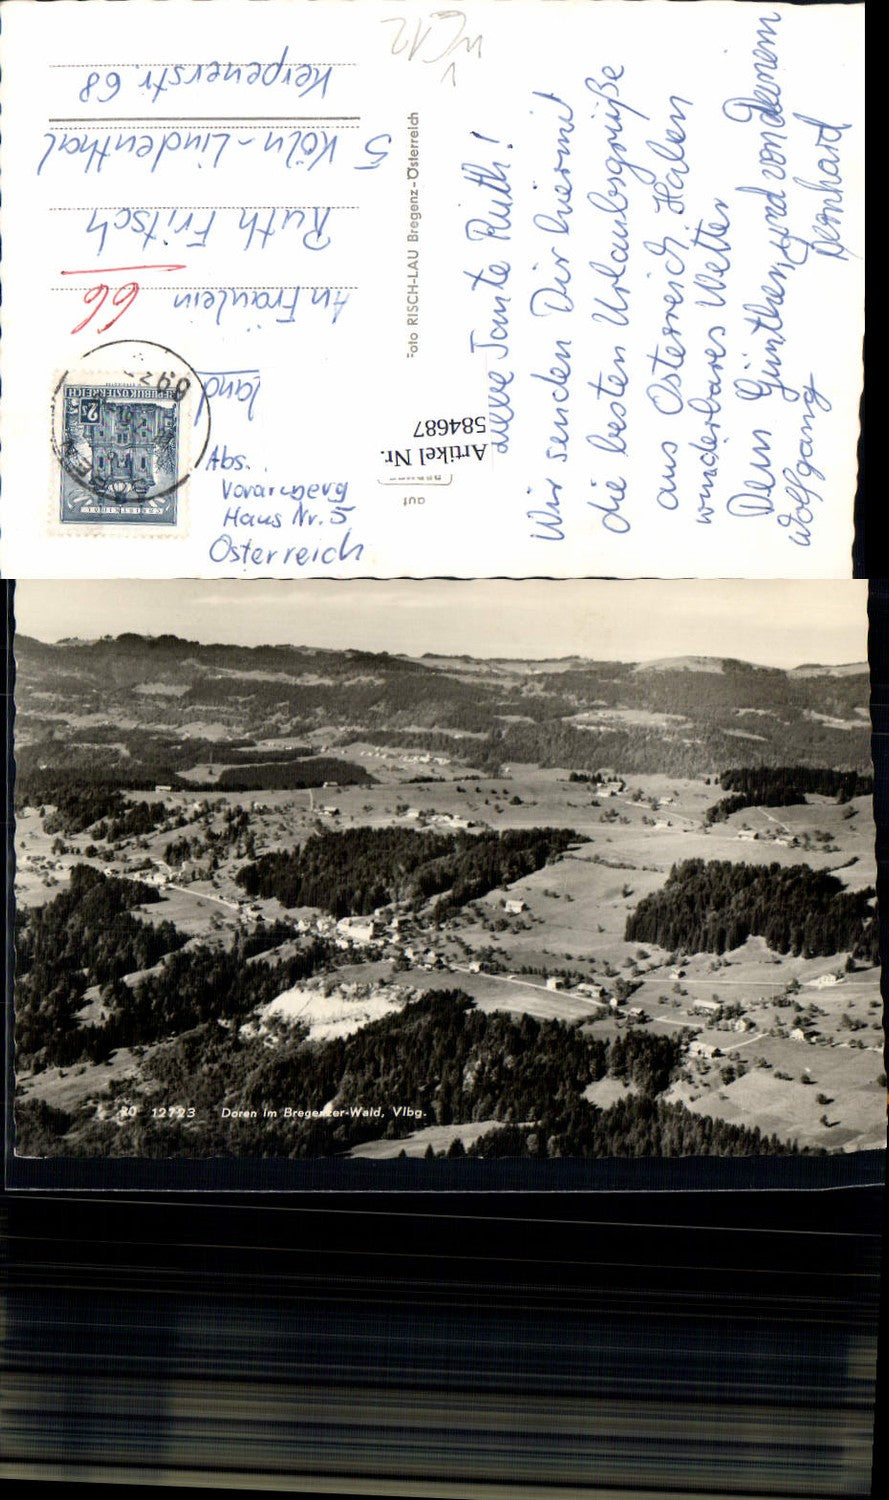 Liebe Tante Ruth!
Wir senden Dir hiermit
die besten Urlaubsgrüße
aus Österreich. Haben
wunderbares Wetter
Dein Günther, und von Deinem
Wolfgang
Bernhard
Foto RISCH-LAU Bregenz-Österreich
An Fräulein
66
Ruth Fritsch
5 Köln-Lindenthal
Kerpenerstr. 68
REPUBLIK ÖSTERREICH
2
Abs.
Vorarlberg
Haus Nr. 5
Österreich
auf
Artikel Nr.
584687
12723 Doren im Bregenzer-Wald, Vlbg.